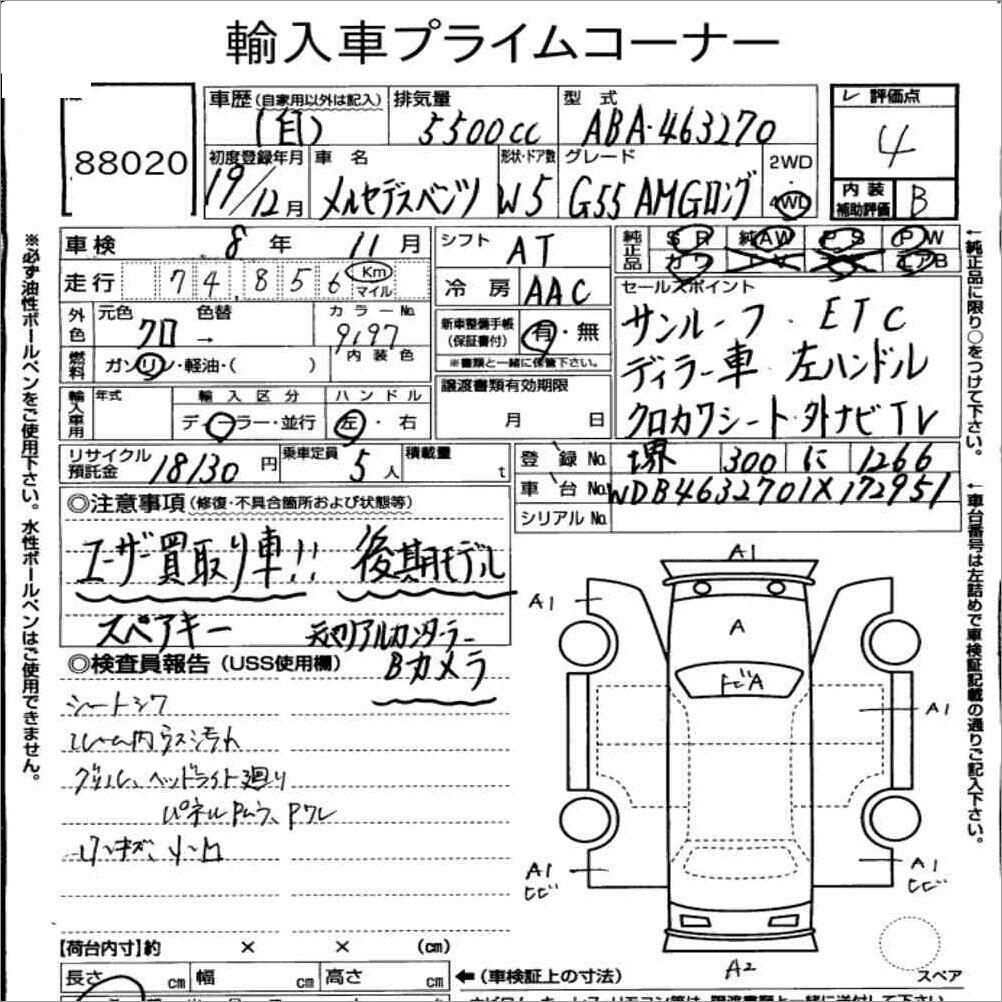 輸入車プライムコーナー
88020
車歴 (自家用以外は記入) 排気量 型式 レ 評価点
(自) 5500cc ABA-463270 4
初度登録年月 車名 形状・ドア数 グレード 2WD 内装補助評価
19/12月 メルセデスベンツ W5 G55 AMGロング 4WD B
車検 8年 11月 シフト AT 純正品 SR 純AW PS PW
走行 74,856 Km マイル 冷房 AAC カワ TV エアB
外色 元色 クロ 色替 → カラーNo. 9197 内装色
新車整備手帳 (保証書付) 有・無
※書類と一緒に保管下さい。
セールスポイント
サンルーフ・ETC
ディラー車 左ハンドル
クロカワシート・外ナビTV
燃料 ガソリン・軽油・( )
譲渡書類有効期限 月 日
輸入車用 年式 輸入区分 ハンドル
ディーラー・並行 左・右
リサイクル預託金 18130円 乗車定員 5人 積載量 t
登録No. 堺 300 に 1266
車台No. WDB4632701X172951
シリアルNo.
◎注意事項 (修復・不具合箇所および状態等)
ユーザー買取り車!! 後期モデル
スペアキー 天切アルカンターラー
Bカメラ
◎検査員報告 (USS使用欄)
シートシワ
ルーム内ラス汚れ
グリル、ヘッドライト廻り
パネルPムラ、Pワレ
A1
A1
A
トビA
A1
A1
ヒビ
A1
ヒビ
A2
スペア
【荷台内寸】約 × × (cm)
長さ cm 幅 cm 高さ cm ←(車検証上の寸法)
※必ず油性ボールペンをご使用下さい。水性ボールペンはご使用できません。
←純正品に限り○をつけて下さい。
←車台番号は左詰めで車検証記載の通りご記入下さい。